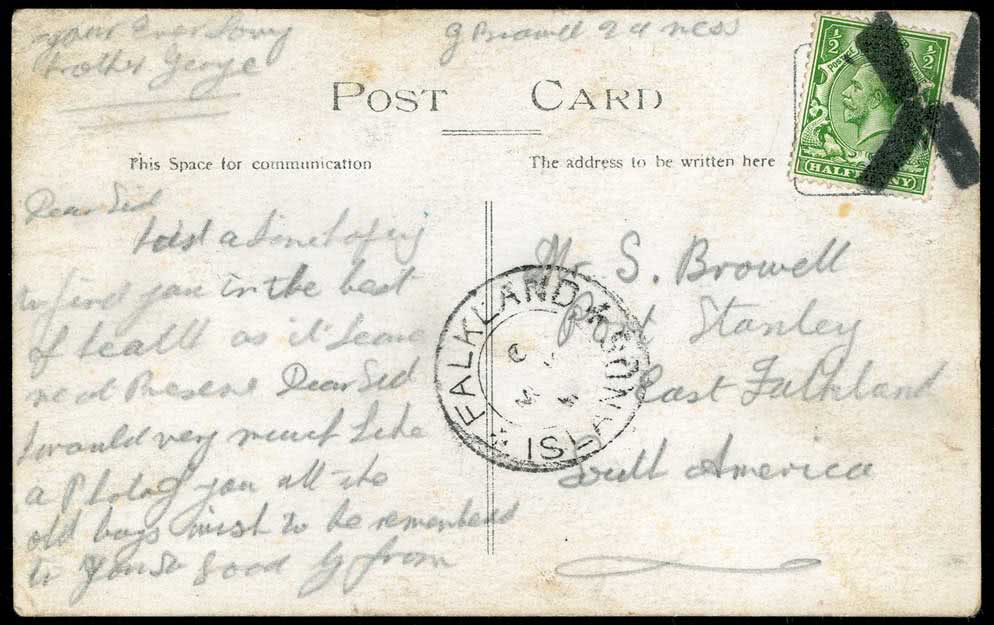 your Ever Loving
brother George
G Browell
POST CARD
This Space for communication
The address to be written here
1/2 1/2
HALFPENNY
Dear Sid
Just a line hoping
to find you in the best
of health as it leave
me at Present Dear Sid
I would very much Like
a Photo of you all the
old boys wish to be remembered
to you so good by from
Mr. S. Browell
Port Stanley
East Falkland
South America
FALKLAND ISLANDS